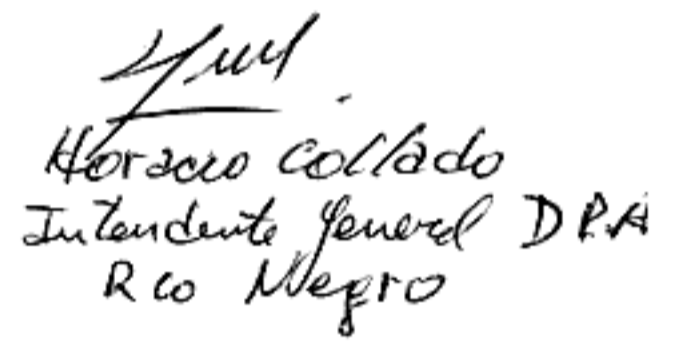 Horacio Collado
Intendente General D.P.A
Rio Negro